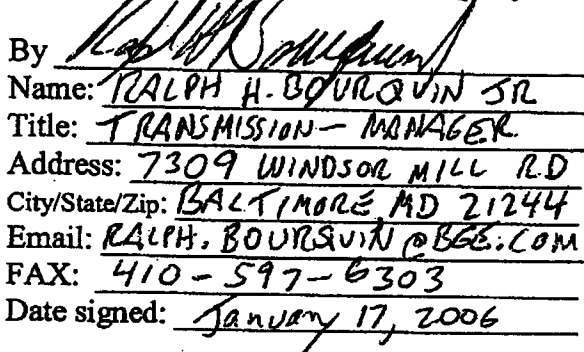 By Ralph H Bourquin
Name: RALPH H. BOURQUIN JR
Title: TRANSMISSION - MANAGER
Address: 7309 WINDSOR MILL RD
City/State/Zip: BALTIMORE, MD 21244
Email: RALPH.BOURQUIN@BGE.COM
FAX: 410-597-6303
Date signed: January 17, 2006